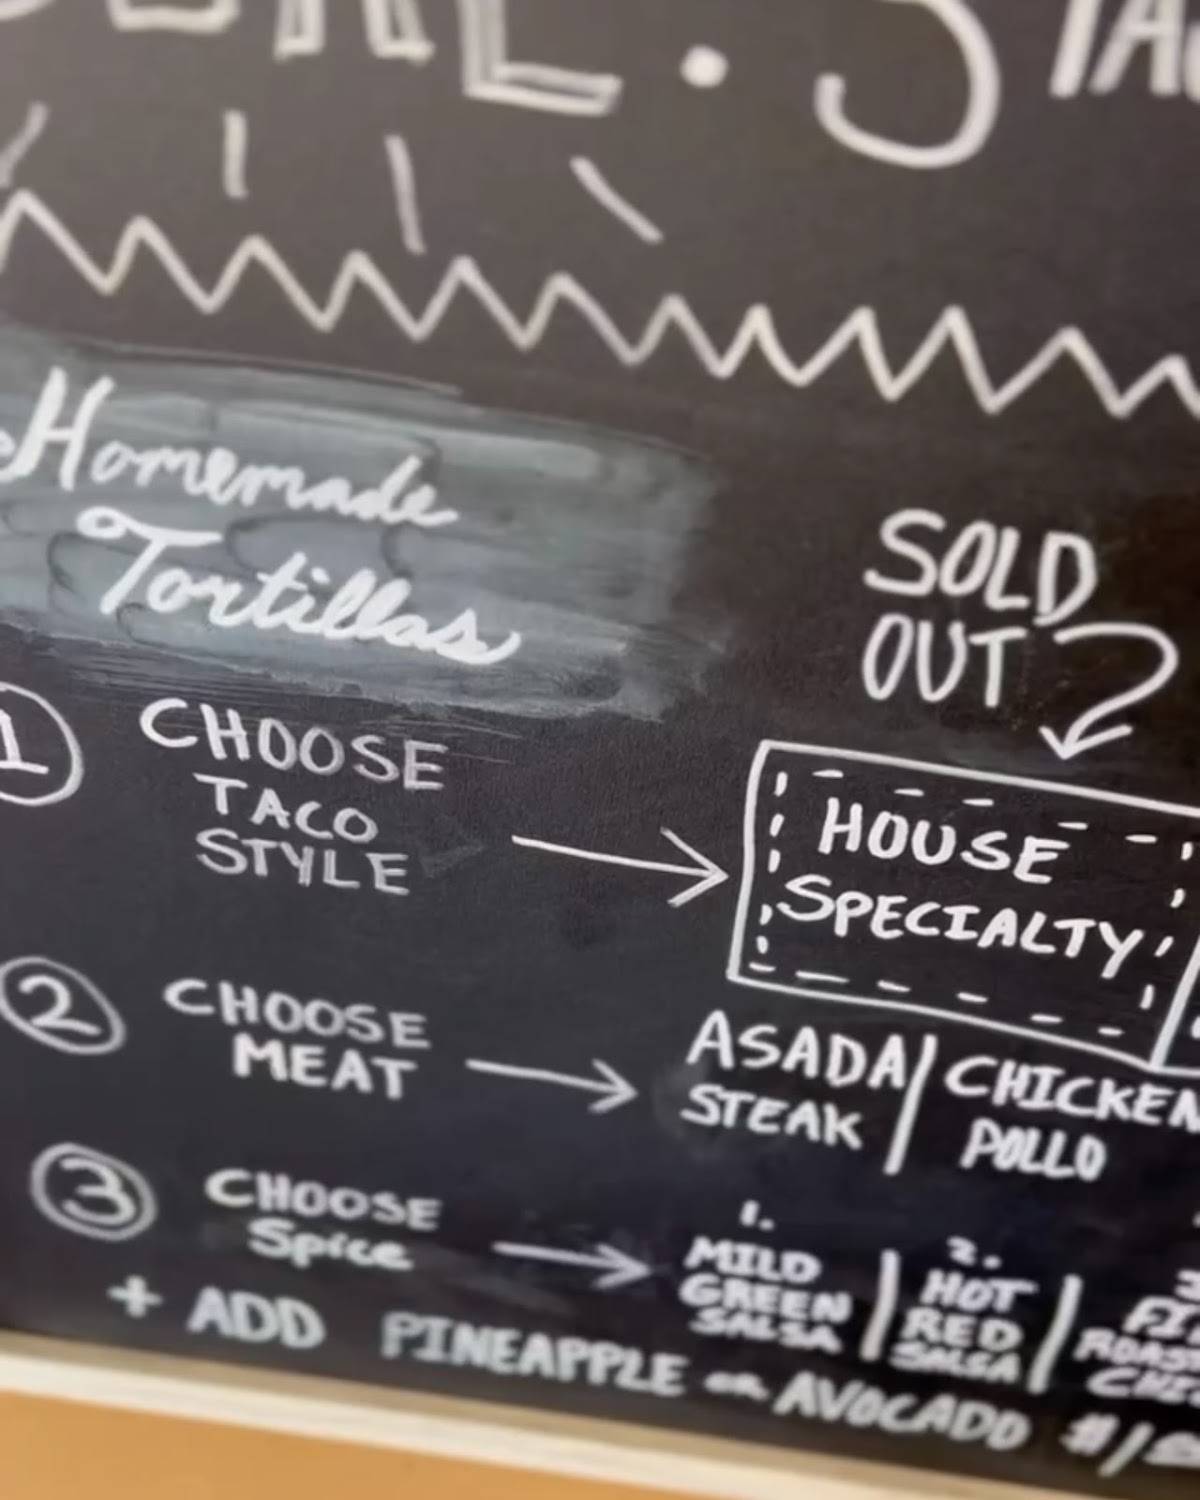 Homemade
Tortillas
SOLD
OUT
1 CHOOSE
TACO
STYLE
HOUSE
SPECIALTY
2 CHOOSE
MEAT
ASADA / CHICKEN
STEAK POLLO
3 CHOOSE
Spice
1.
MILD
GREEN
SALSA
2.
HOT
RED
SALSA
+ ADD PINEAPPLE or AVOCADO